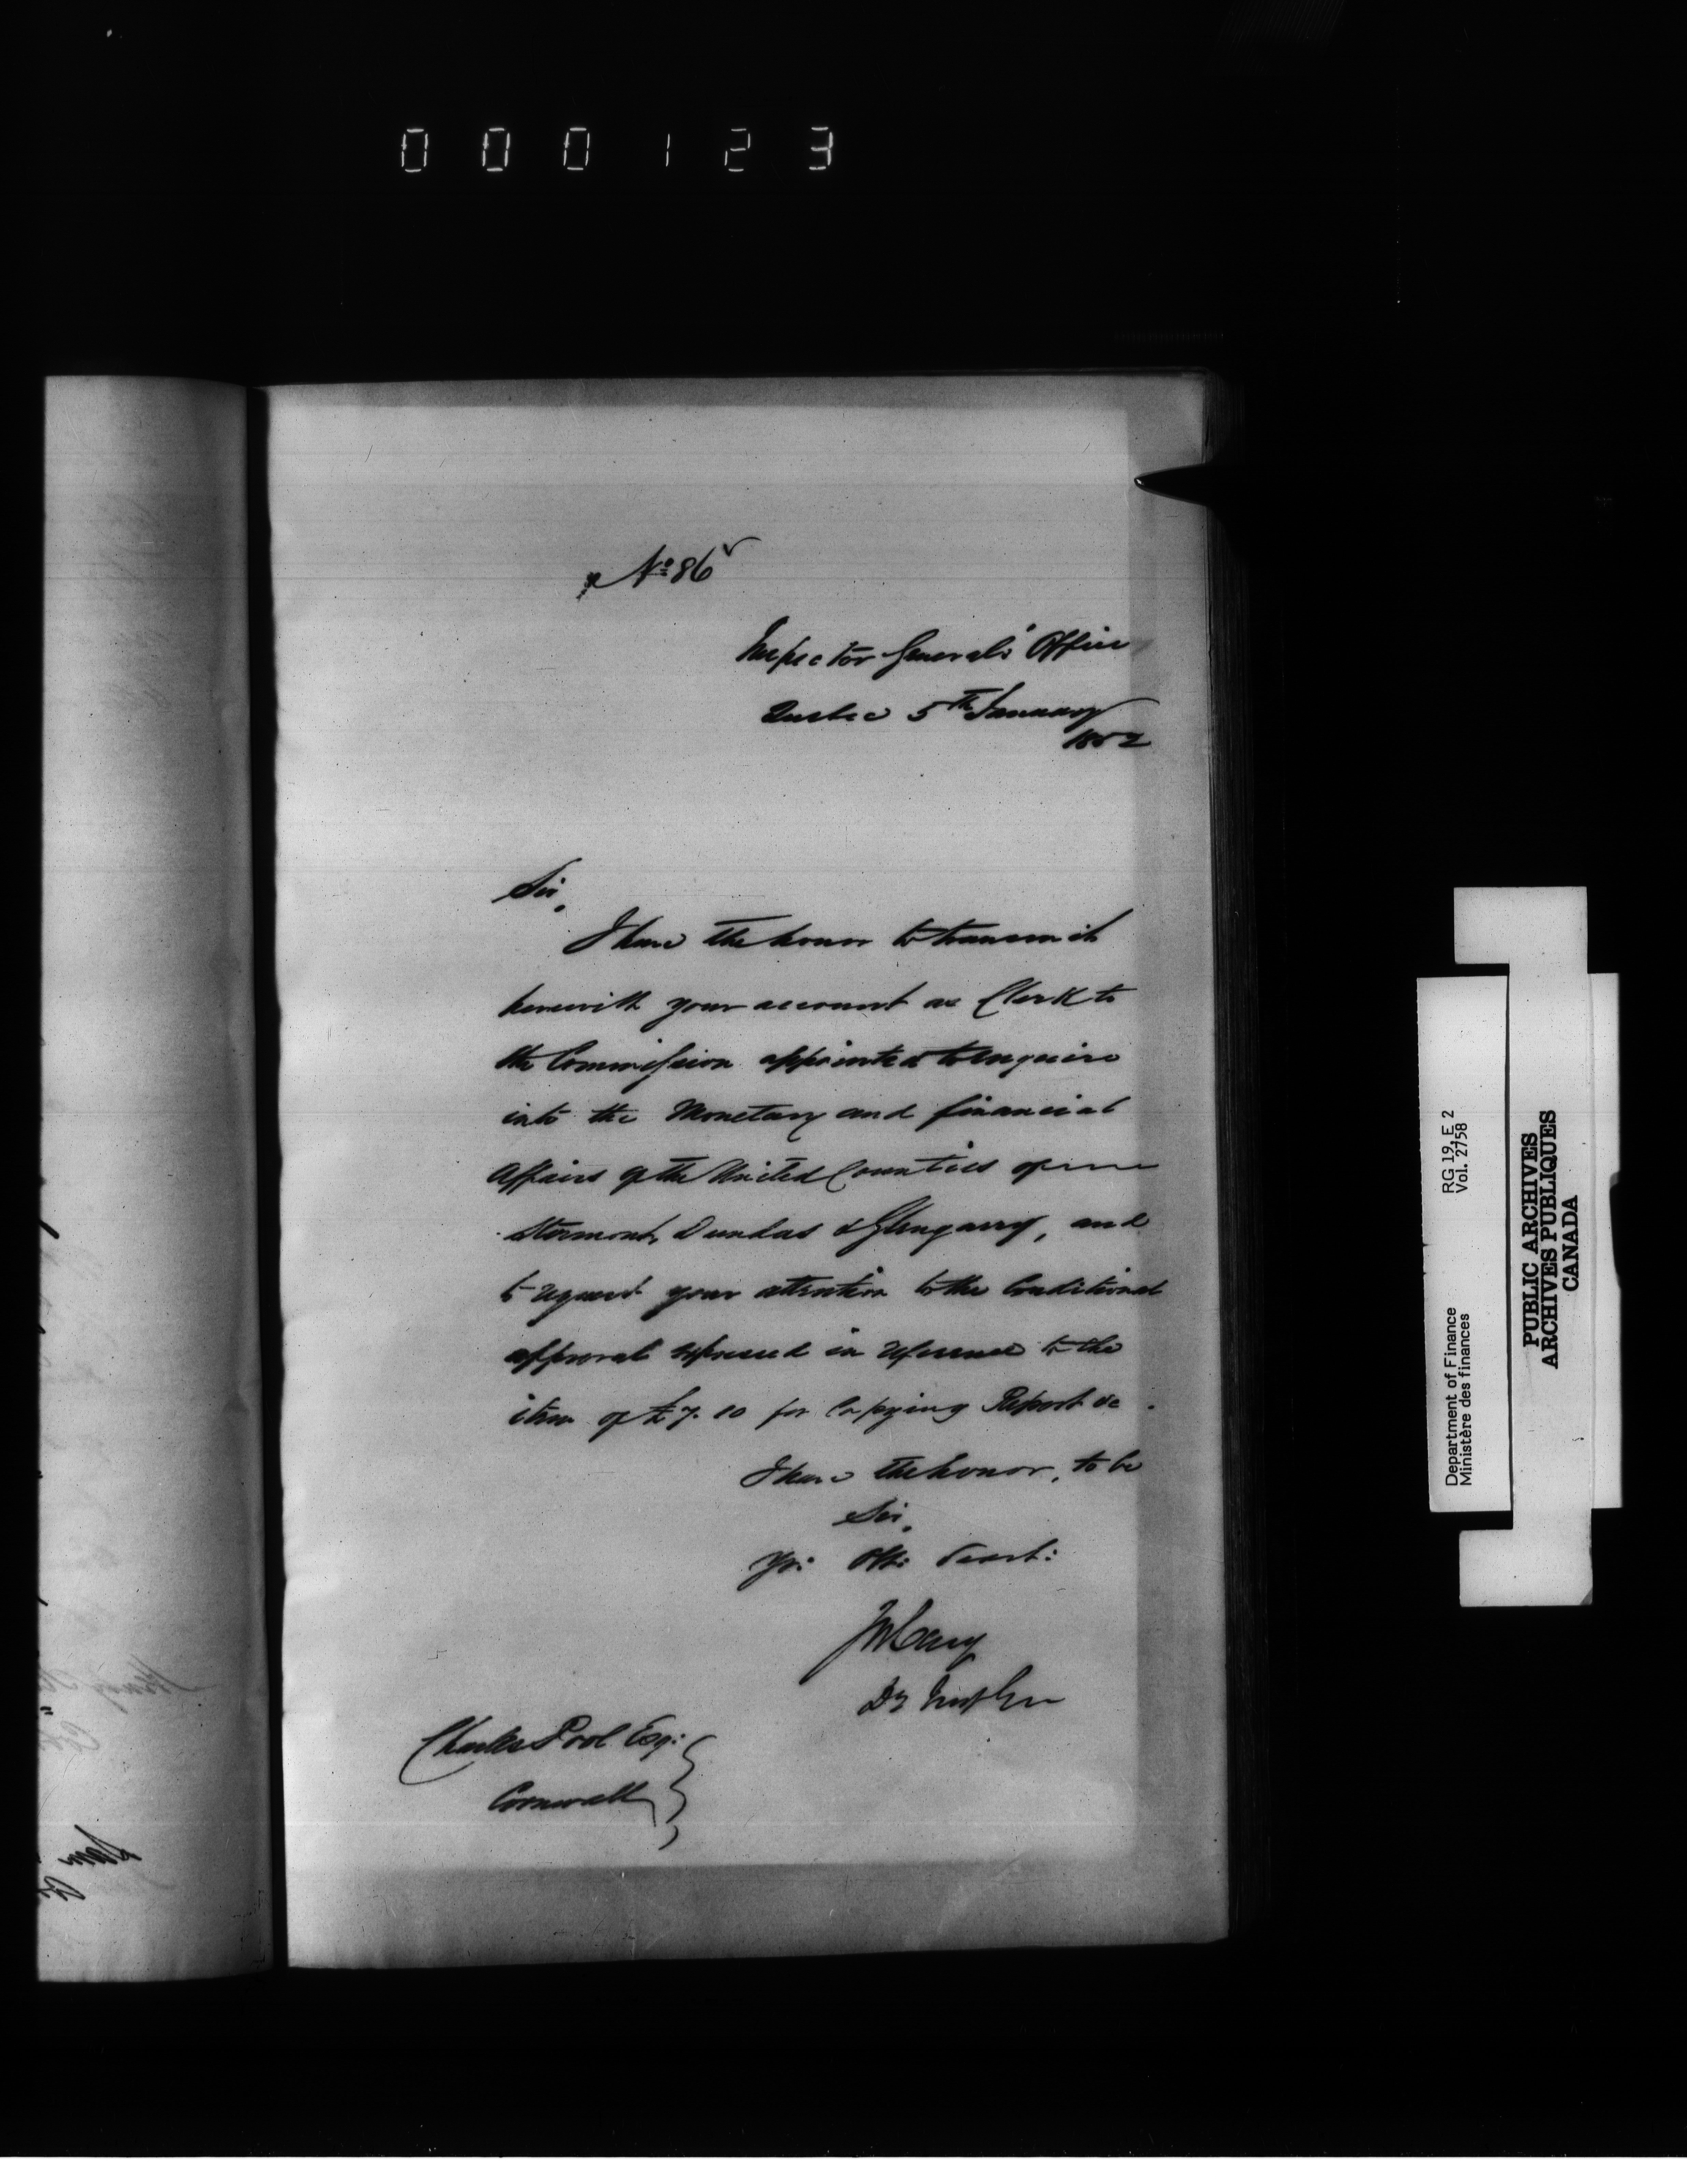 000123
No 86
Inspector General's Office
Quebec 5th January
1852
Sir,
I have the honor to transmit
herewith your account as Clerk to
the Commission appointed to enquire
into the Monetary and financial
Affairs of the United Counties of
Stormont, Dundas & Glengarry, and
to request your attention to the Conditional
approval expressed in reference to the
item of £7.10 for Copying Report &c.
I have the honor, to be
Sir,
Yr: Obt: Servt:
Jos Cary
Dy Insp Gen
Charles Pool Esq:
Cornwall
Department of Finance
Ministère des finances
RG 19, E 2
Vol. 2758
PUBLIC ARCHIVES
ARCHIVES PUBLIQUES
CANADA